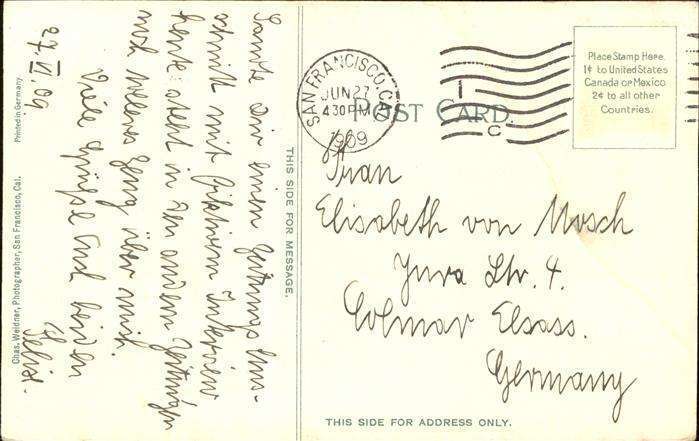 Sandte dir einen Zeitungs Aus-
schnitt mit fiktivem Interview
heute steht in den andern Zeitungen
noch tolleres Zeug über mich.
Viele Grüße Euch beiden
Felix.
27.VI.09
THIS SIDE FOR MESSAGE.
Chas. Weidner, Photographer, San Francisco, Cal.
Printed in Germany
POST CARD.
SAN FRANCISCO, CAL
JUN 27
430 PM
1909
1
C
Place Stamp Here.
1¢ to United States
Canada or Mexico
2¢ to all other
Countries.
Frau
Elisabeth von Mosch
Jura Str. 4.
Colmar Elsass.
Germany
THIS SIDE FOR ADDRESS ONLY.